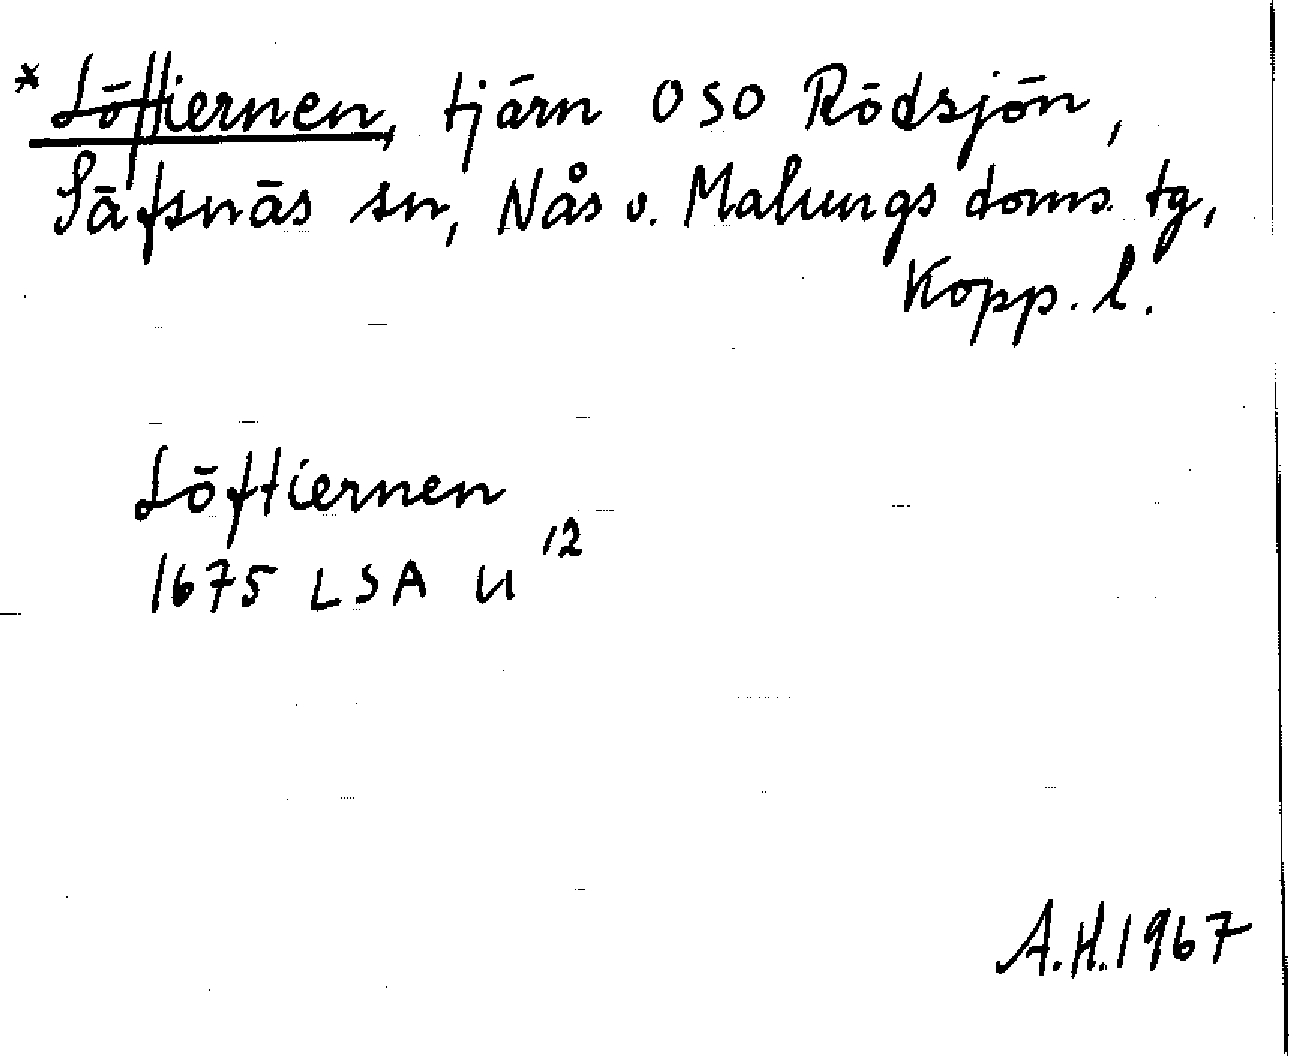 * Löftiernen, tjärn OSO Rödsjön,
Säfsnäs sn, Nås o. Malungs doms. tg,
Kopp. l.
Löftiernen
1675 LSA U 12
A.H. 1967